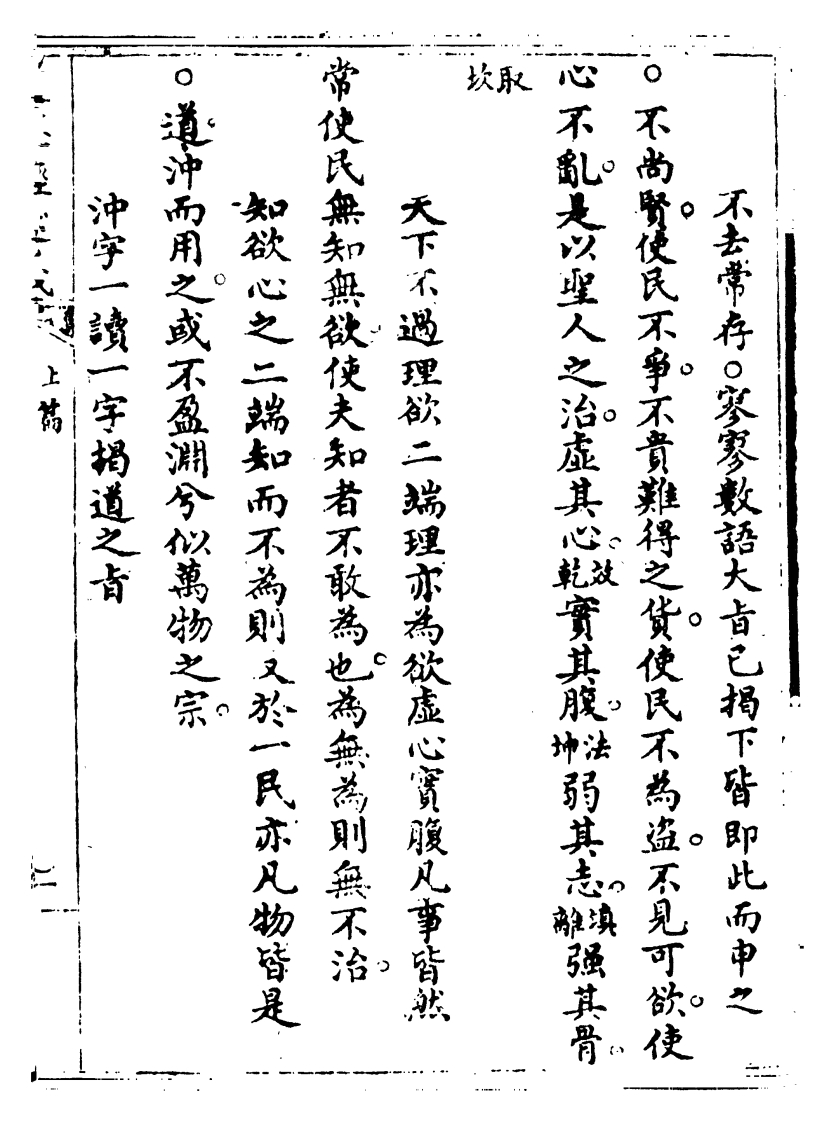 不去常存○寥寥數語大旨已揭下皆即此而申之
○不尚賢使民不爭不貴難得之貨使民不為盜不見可欲使
心不亂是以聖人之治虛其心效乾實其腹法坤弱其志填離强其骨
取坎
天下不過理欲二端理亦為欲虛心實腹凡事皆然
常使民無知無欲使夫知者不敢為也為無為則無不治
知欲心之二端知而不為則又於一民亦凡物皆是
○道沖而用之或不盈淵兮似萬物之宗
沖字一讀一字揭道之旨
上篇
二